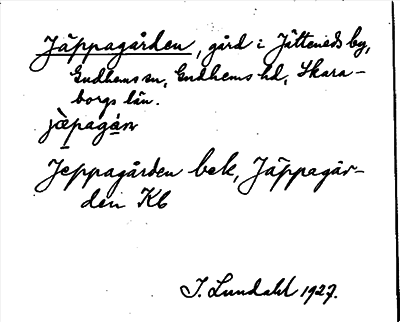 Jäppagården, gård i Jätteneds by,
Gudhems sn, Gudhems hd, Skara-
borgs län.
jæ̀pagán
Jeppagården bek, Jäppagår-
den Kb
I. Lundahl 1927.